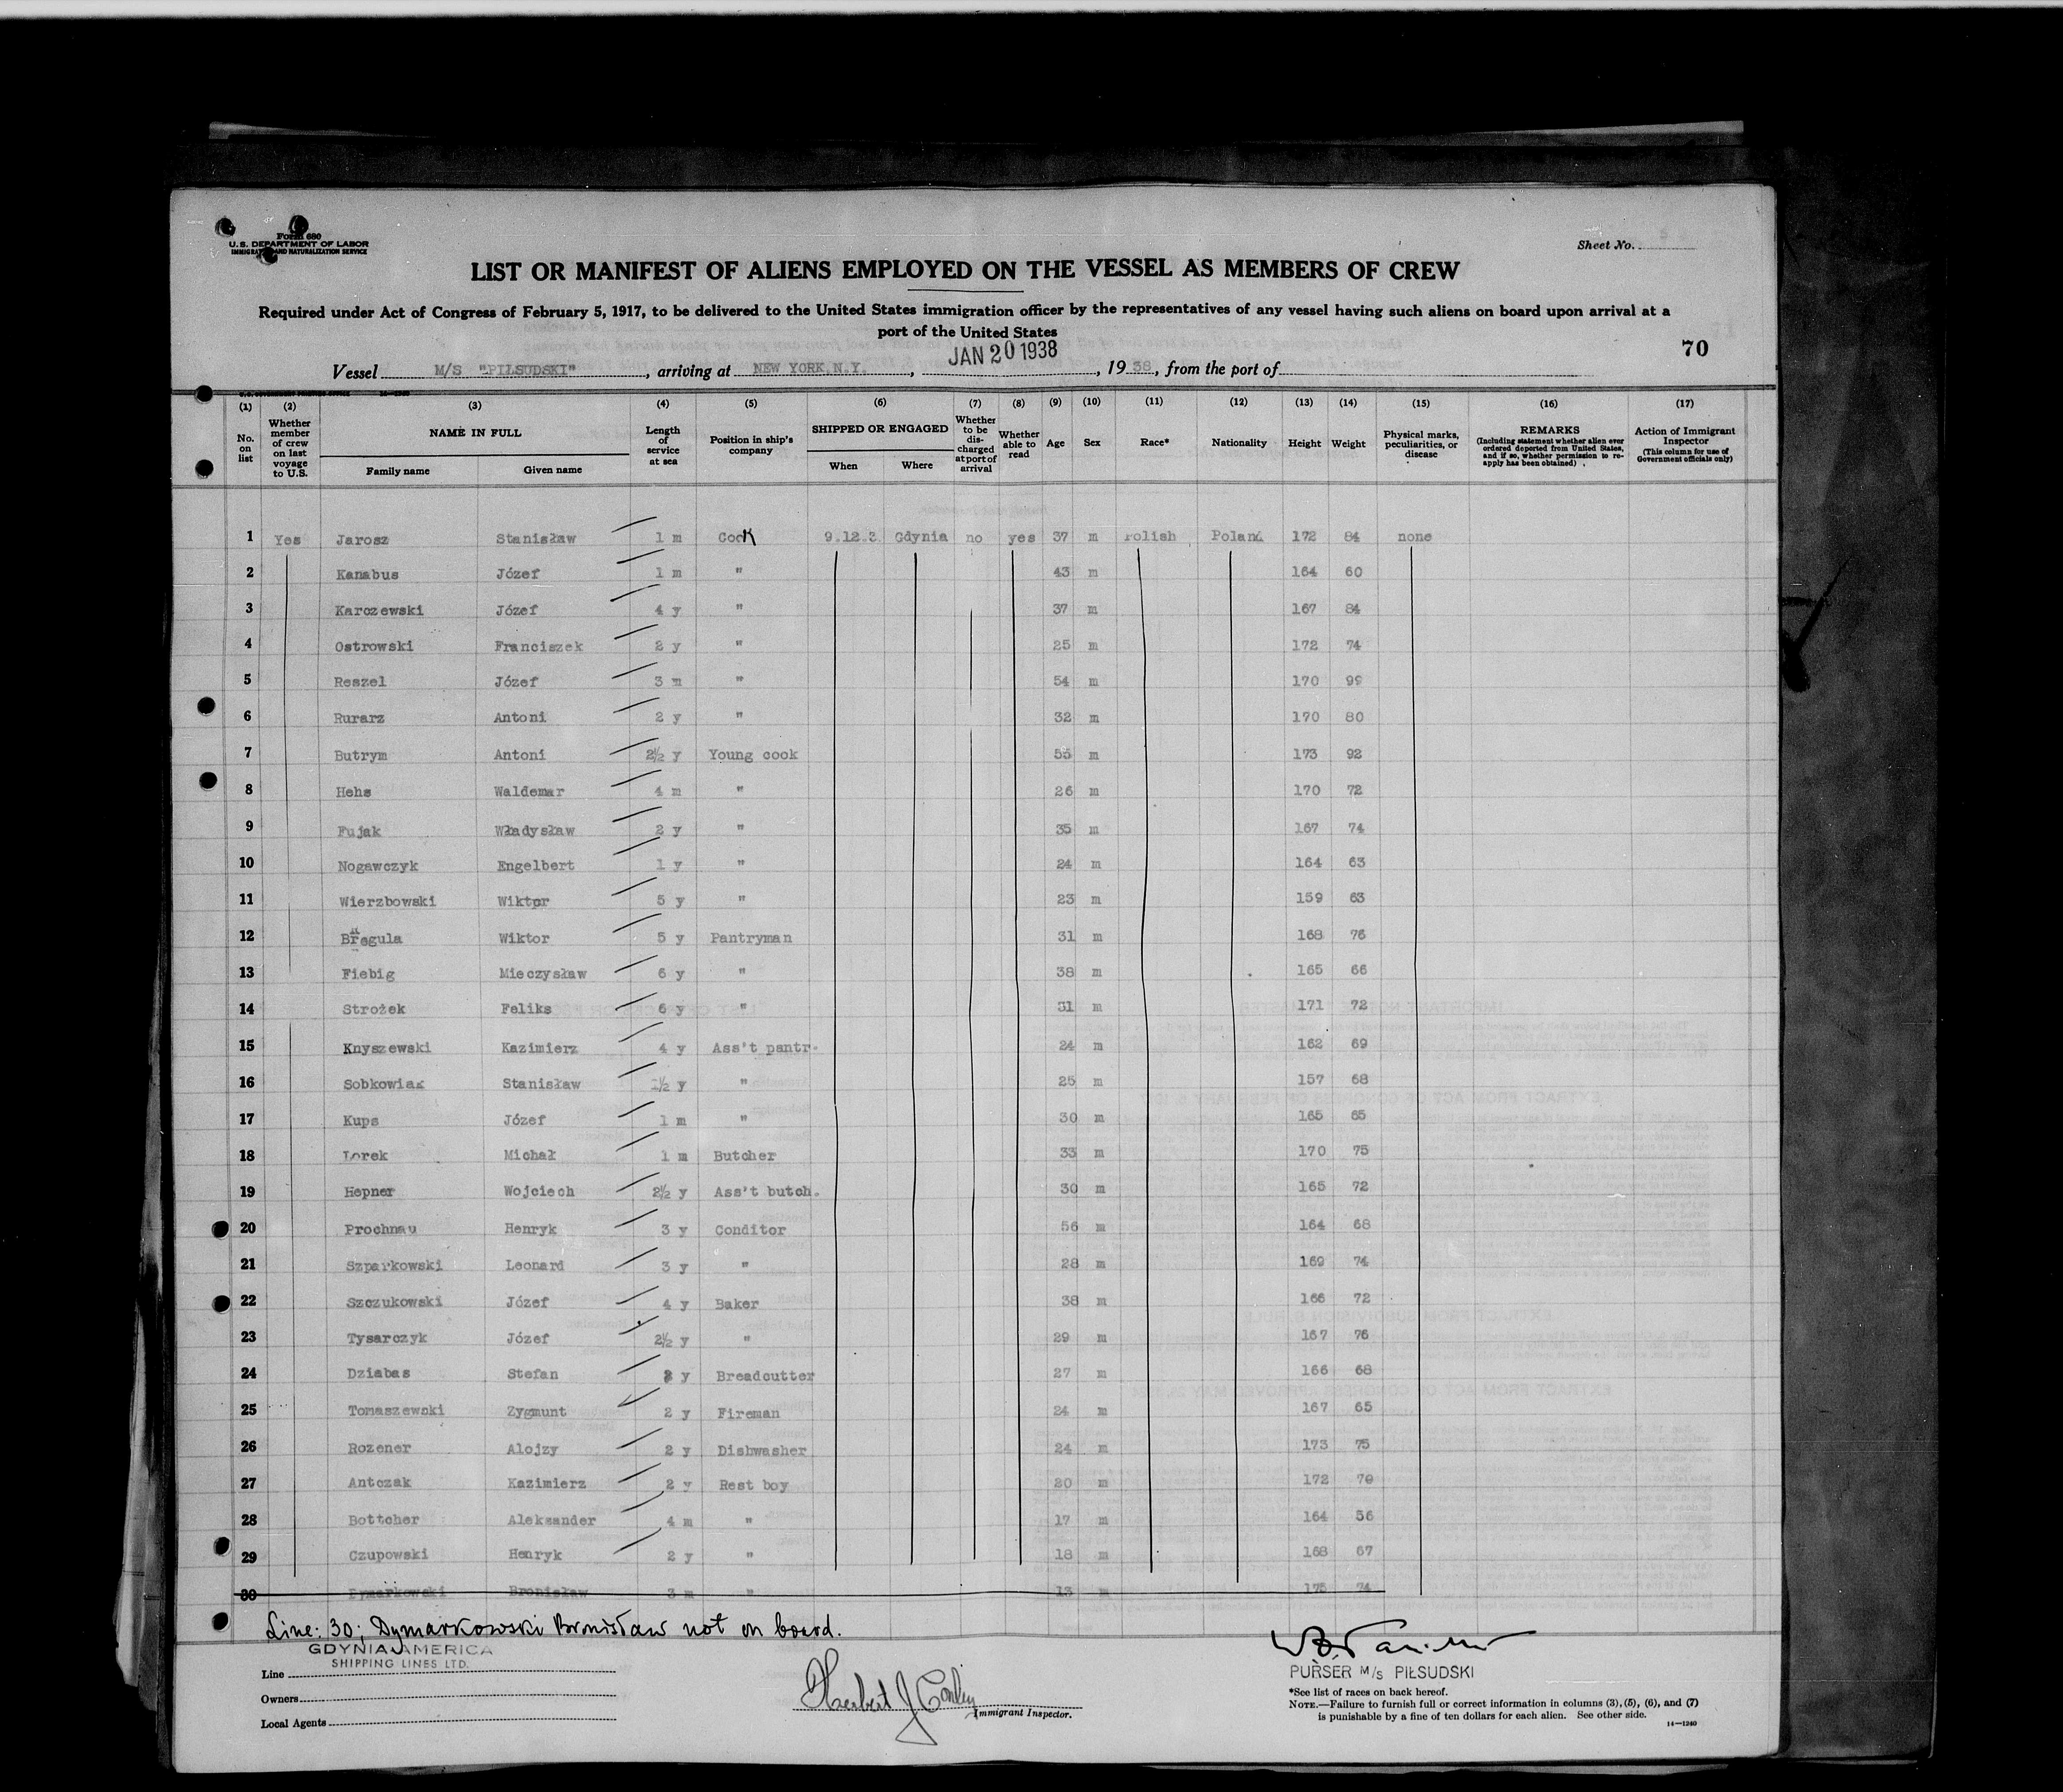 Form 680
U. S. DEPARTMENT OF LABOR
IMMIGRATION AND NATURALIZATION SERVICE
Sheet No.
LIST OR MANIFEST OF ALIENS EMPLOYED ON THE VESSEL AS MEMBERS OF CREW
Required under Act of Congress of February 5, 1917, to be delivered to the United States immigration officer by the representatives of any vessel having such aliens on board upon arrival at a
port of the United States
70
Vessel M/S "PIŁSUDSKI", arriving at NEW YORK N.Y., JAN 20 1938, 1938, from the port of
(1) (2) (3) (4) (5) (6) (7) (8) (9) (10) (11) (12) (13) (14) (15) (16) (17)
No. on list
Whether member of crew on last voyage to U.S.
NAME IN FULL
Family name Given name
Length of service at sea
Position in ship's company
SHIPPED OR ENGAGED
When Where
Whether to be discharged at port of arrival
Whether able to read
Age
Sex
Race*
Nationality
Height
Weight
Physical marks, peculiarities, or disease
REMARKS
(Including statement whether alien ever ordered deported from United States, and if so, whether permission to re-apply has been obtained)
Action of Immigrant Inspector
(This column for use of Government officials only)
1 Yes Jarosz Stanisław 1 m Cook 9.12.3. Gdynia no yes 37 m Polish Poland 172 84 none
2 Kanabus Józef 1 m " 43 m 164 60
3 Karczewski Józef 4 y " 37 m 167 84
4 Ostrowski Franciszek 2 y " 25 m 172 74
5 Reszel Józef 3 m " 54 m 170 99
6 Rurarz Antoni 2 y " 32 m 170 80
7 Butrym Antoni 2½ y Young cook 55 m 173 92
8 Hehs Waldemar 4 m " 26 m 170 72
9 Fujak Władysław 2 y " 35 m 167 74
10 Nogawczyk Engelbert 1 y " 24 m 164 63
11 Wierzbowski Wiktor 5 y " 23 m 159 63
12 Wiktor 5 y Pantryman 31 m 168 76
13 Fiebig Mieczysław 6 y " 38 m 165 66
14 Strożek Feliks 6 y " 31 m 171 72
15 Knyszewski Kazimierz 4 y Ass't pantr. 24 m 162 69
16 Sobkowiak Stanisław 1½ y " 25 m 157 68
17 Kups Józef 1 m " 30 m 165 65
18 Lorek Michał 1 m Butcher 33 m 170 75
19 Hepner Wojciech 2½ y Ass't butch. 30 m 165 72
20 Prochnau Henryk 3 y Conditor 56 m 164 68
21 Szparkowski Leonard 3 y " 28 m 169 74
22 Szczukowski Józef 4 y Baker 38 m 166 72
23 Tysarczyk Józef 2½ y " 29 m 167 76
24 Dziabas Stefan y Breadcutter 27 m 166 68
25 Tomaszewski Zygmunt 2 y Fireman 24 m 167 65
26 Rozener Alojzy 2 y Dishwasher 24 m 173 75
27 Antczak Kazimierz 2 y Rest boy 20 m 172 70
28 Bottcher Aleksander 4 m " 17 m 164 56
29 Czupowski Henryk 2 y " 18 m 168 67
30 Dymarkowski Bronisław 3 m " m 175 74
Line: 30; Dymarkowski Bronisław not on board.
GDYNIA AMERICA
SHIPPING LINES LTD.
Line
Owners
Local Agents
Herbert J Conley
Immigrant Inspector.
PURSER M/S PIŁSUDSKI
*See list of races on back hereof.
NOTE.—Failure to furnish full or correct information in columns (3), (5), (6), and (7)
is punishable by a fine of ten dollars for each alien. See other side.
14—1240